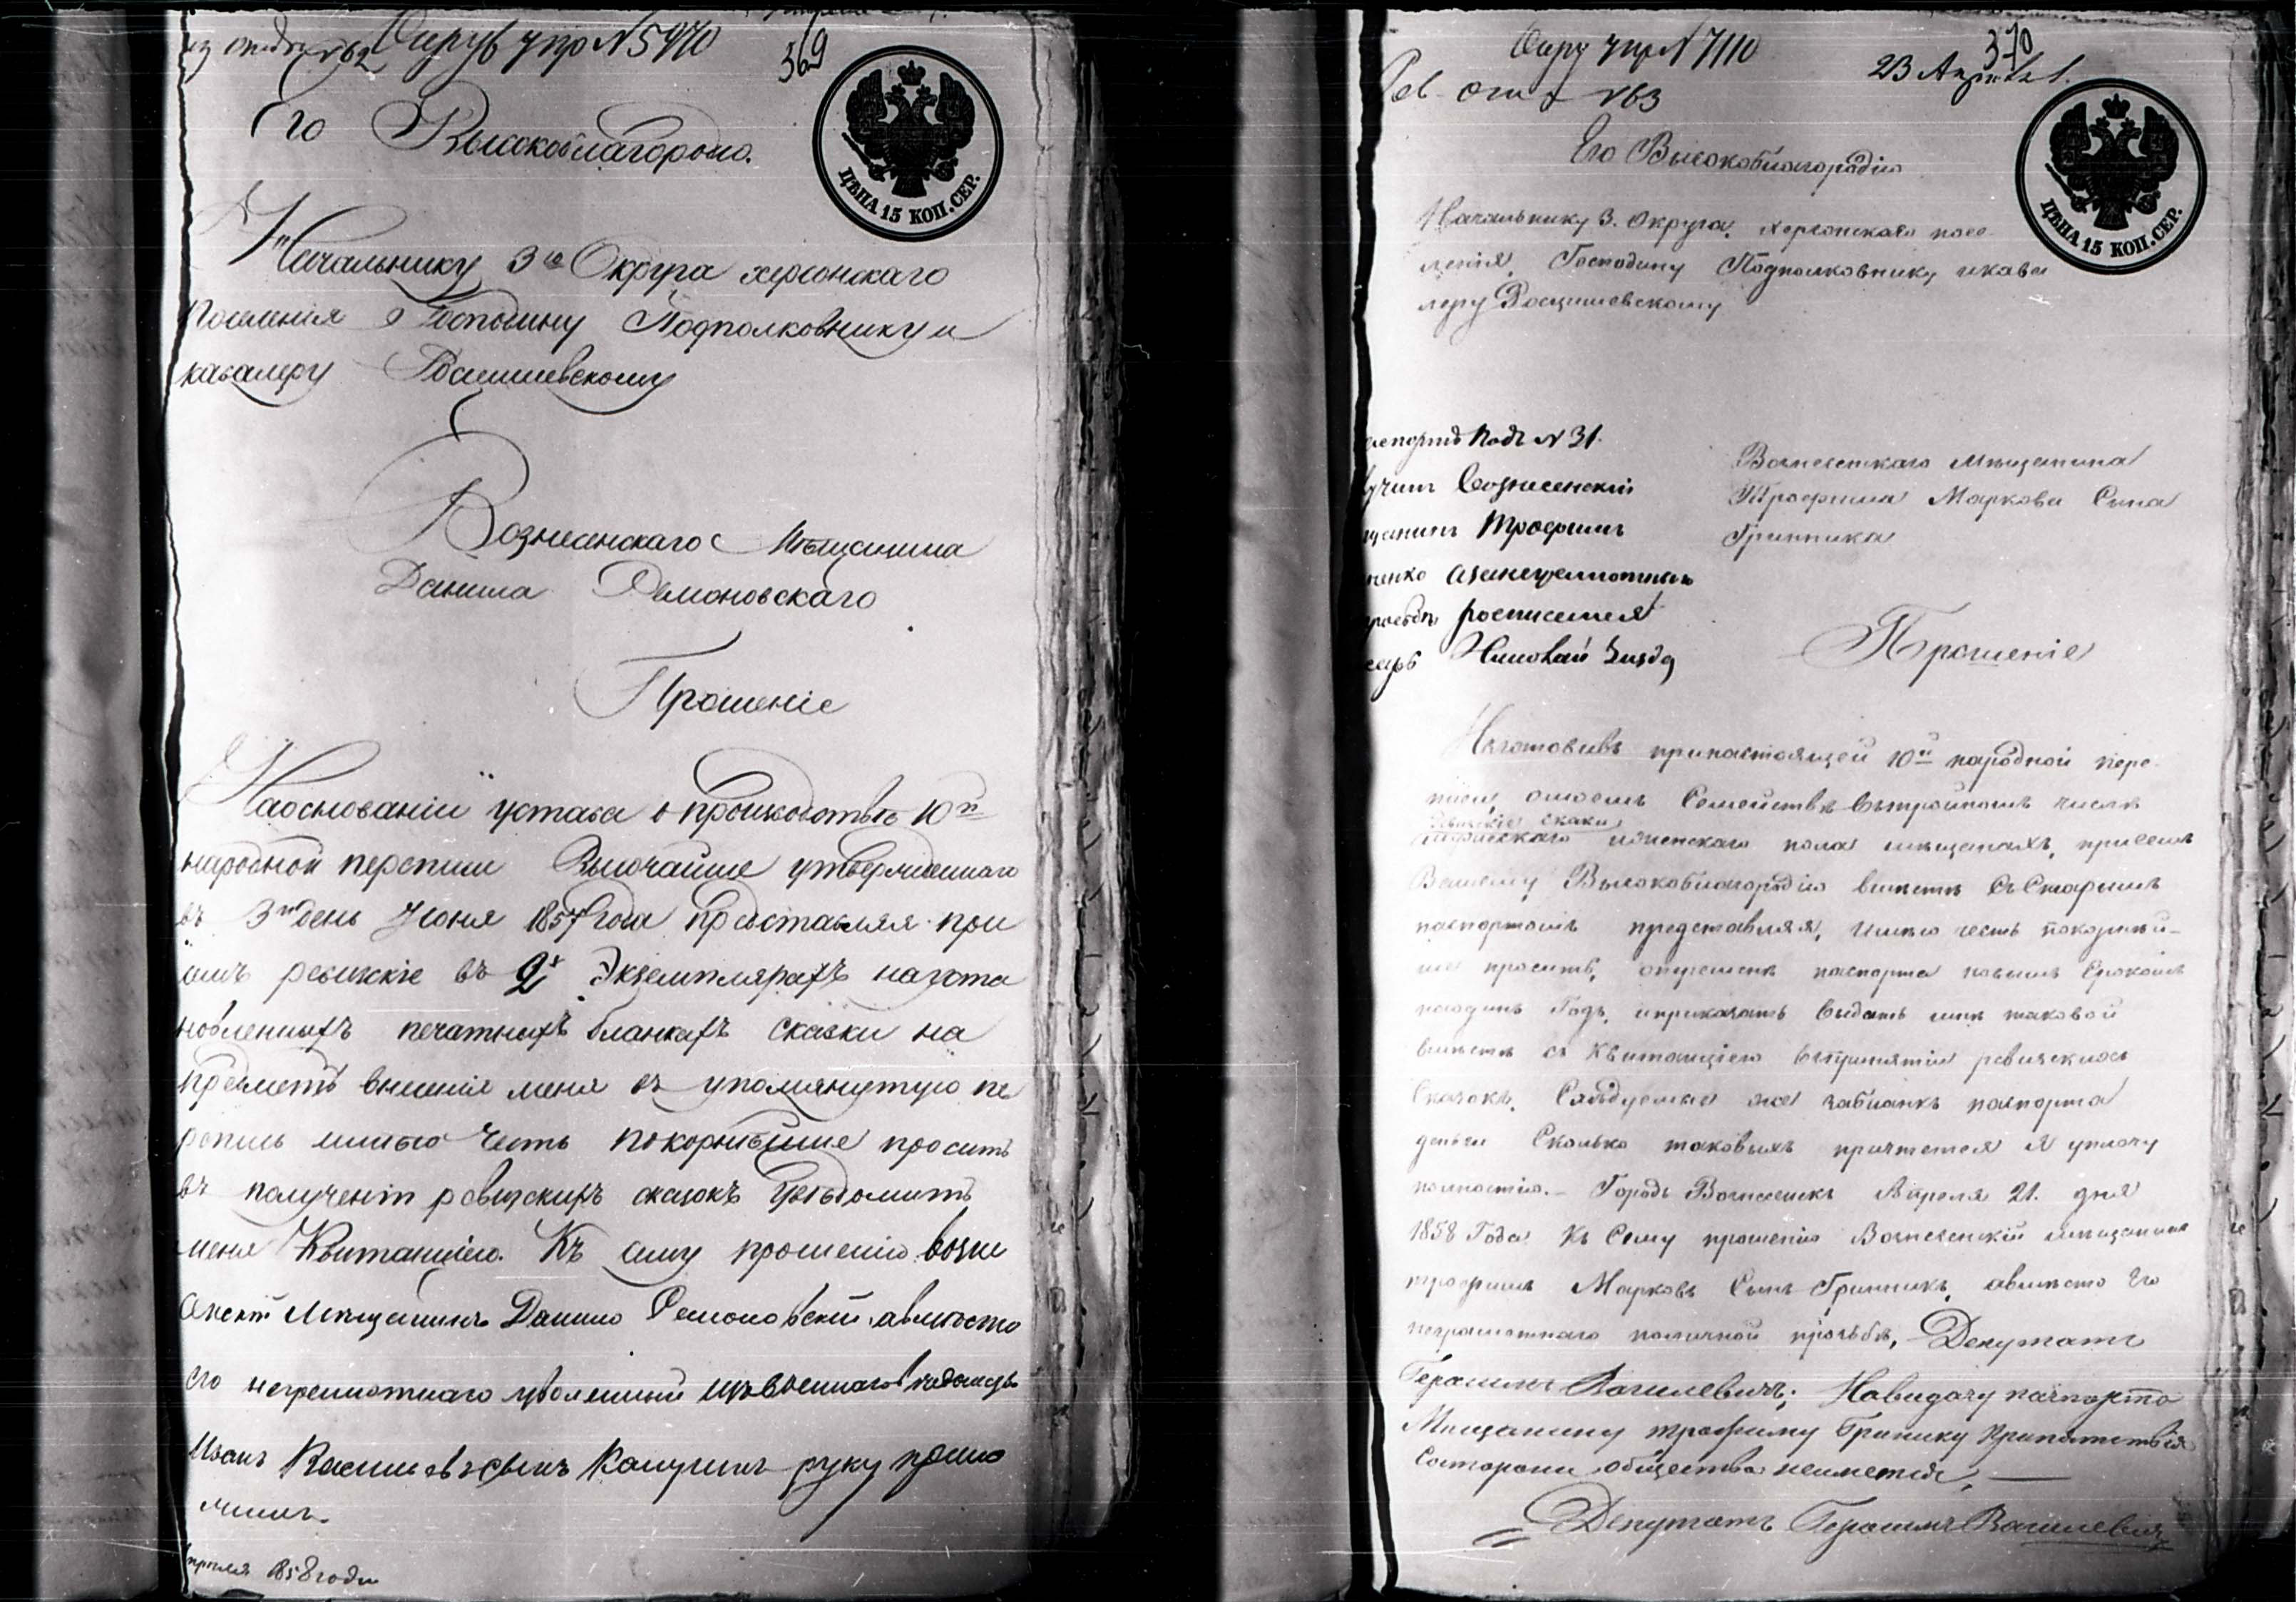 Окруж упр N 5970
369
Его Высокоблагородію
ЦѢНА 15 КОП. СЕР.
Начальнику 3го Округа херсонскаго
поселенія Господину Подполковнику и
кавалеру Росцишевскому
Вознесенскаго Мѣщанина
Данила
Прошеніе
Наоснованіи устава о производствѣ 10й
народной переписи Высочайше утвержденнаго
въ 3й день Июня 1857 года представляя при
семъ ревизкіе въ 2х Экземплярахъ науста
новленныхъ печатныхъ бланкахъ сказки на
предметъ внесенія меня въ упомянутую пе
репись имѣю честь покорнѣйше просить
въ полученіи ревизскихъ сказокъ увѣдомить
меня Квитанціею. Къ сему прошенію возне
сенскій Мѣщанинъ Данило авместо
его неграмотнаго уволенный изъ военнаго
Иванъ Васильевъ сынъ руку прило
жилъ.
апреля 1858 года
Окру упр N 7110
370
23 Апреля
Рев N 63
Его Высокоблагородію
ЦѢНА 15 КОП. СЕР.
Начальнику 3. Округа, херсонскаго посе
ленія, Господину Подполковнику икава
леру Росцишевскому
подъ N 31.
Вознесенскій
Трофимъ
росписался
Вознесенскаго Мѣщанина
Трофима Маркова Сына
Гринника
Прошеніе
Изготовивъ принастоящей 10й народной пере
писи, омоемъ Семействѣ
ревизскіе скаски
мужескаго иженскаго пола мѣщанахъ, присемъ
Вашему Высокоблагородію вмѣстѣ съ Старымъ
паспортомъ представляя, имѣю честь покорнѣй-
ше просить, паспорта новымъ Срокомъ
наодинъ Годъ, иприказать выдать мнѣ таковой
вмѣстѣ съ Квитанціею впринятіи ревизскихъ
Сказокъ, Слѣдуемые же забланкъ паспорта
деньги Сколько таковыхъ причтется я уплачу
полностію. — Городъ Вознесенскъ Апреля 21. дня
1858 Года Къ Сему прошенію Вознесенскій мѣщанинъ
трофимъ Марковъ Сынъ Гринникъ, авмѣсто Его
неграмотнаго поличной прозьбѣ, Депутатъ
Герасимъ Василевичъ; Навидачу паспорта
Мищанину трофиму Гринику Припятствія
Состороны общества неимется, —
Депутатъ Герасимъ Василевичъ